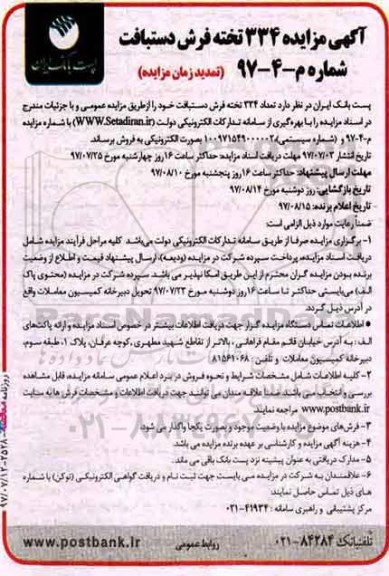 آگهی مزایده ۳۳۴ تخته فرش دستبافت
شماره م-۴-۹۷ (تمدید زمان مزایده)
پست بانک ایران
پست بانک ایران در نظر دارد تعداد ۳۳۴ تخته فرش دستبافت خود را از طریق مزایده عمومی و با جزئیات مندرج
در اسناد مزایده را با بهره گیری از سامانه تدارکات الکترونیکی دولت (WWW.Setadiran.ir) با شماره مزایده
م-۴-۹۷ و (شماره سیستمی) ۱۰۰۹۷۱۵۴۹۰۰۰۰۰۲ بصورت الکترونیکی به فروش برساند.
تاریخ انتشار ۹۷/۰۷/۰۳ مهلت دریافت اسناد مزایده: حداکثر ساعت ۱۶ روز چهارشنبه مورخ ۹۷/۰۷/۲۵
مهلت ارسال پیشنهاد: حداکثر ساعت ۱۶ روز پنجشنبه مورخ ۹۷/۰۸/۱۰
تاریخ بازگشایی: روز دوشنبه مورخ ۹۷/۰۸/۱۴
تاریخ اعلام برنده: ۹۷/۰۸/۱۵
ضمنا رعایت موارد ذیل الزامی است:
۱- برگزاری مزایده صرفا از طریق سامانه تدارکات الکترونیکی دولت می باشد کلیه مراحل فرآیند مزایده شامل
دریافت اسناد مزایده، پرداخت سپرده شرکت در مزایده (ودیعه)، ارسال پیشنهاد قیمت و اطلاع از وضعیت
برنده بودن مزایده گران محترم از این طریق امکا نپذیر می باشد. سپرده شرکت در مزایده (محتوی پاک
الف) می بایستی حداکثر تا ساعت ۱۶ روز دوشنبه مورخ ۹۷/۰۷/۲۳ تحویل دبیرخانه کمیسیون معاملات واقع
در آدرس ذیل گردد.
● اطلاعات تماس دستگاه مزایده گزار جهت دریافت اطلاعات بیشتر در خصوص اسناد مزایده و ارائه پاکت های
الف: به آدرس خیابان قائم مقام فراهانی، بالاتر از تقاطع شهید مطهری، کوچه عرفان، پلاک ۱، طبقه سوم،
دبیرخانه کمیسیون معاملات و تلفن: ۸۱۵۶۱۰۶۸
۲- کلیه اطلاعات شامل مشخصات شرایط و نحوه فروش در برد اعلام عمومی سامانه مزایده، قابل مشاهده
بررسی و انتخاب می باشند ضمنا علاقه مندان می توانید جهت دریافت اطلاعات و مشخصات فرش ها به سایت
www.postbank.ir مراجعه نمایند.
۳- فرش های موضوع مزایده با وضعیت موجود و بصورت یکجا واگذار می شود.
۴- هزینه آگهی مزایده و کارشناسی بر عهده برنده مزایده می باشد.
۵- مدارک دریافتی به عنوان پیشینه نزد پست بانک باقی می ماند.
۶- علاقمندان به شرکت در مزایده می بایست جهت ثبت نام و دریافت گواهی الکترونیکی (توکن) با شماره
های ذیل تماس حاصل نمایند:
مرکز پشتیبانی و راهبری سامانه: ۴۱۹۳۴-۰۲۱
تلفنبانک ۸۴۲۸۴-۰۲۱
روابط عمومی
www.postbank.ir